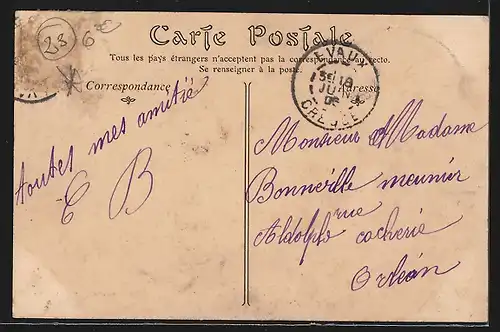 28
6€
Carte Postale
Tous les pays étrangers n'acceptent pas la correspondance au recto.
Se renseigner à la poste.
Correspondance
Adresse
EVAUX
18
JUIN
CREUSE
toutes mes amitié
E B
Monsieur Madame
Bonneville meunier
rue
Aldolphe cocherie
Orléan